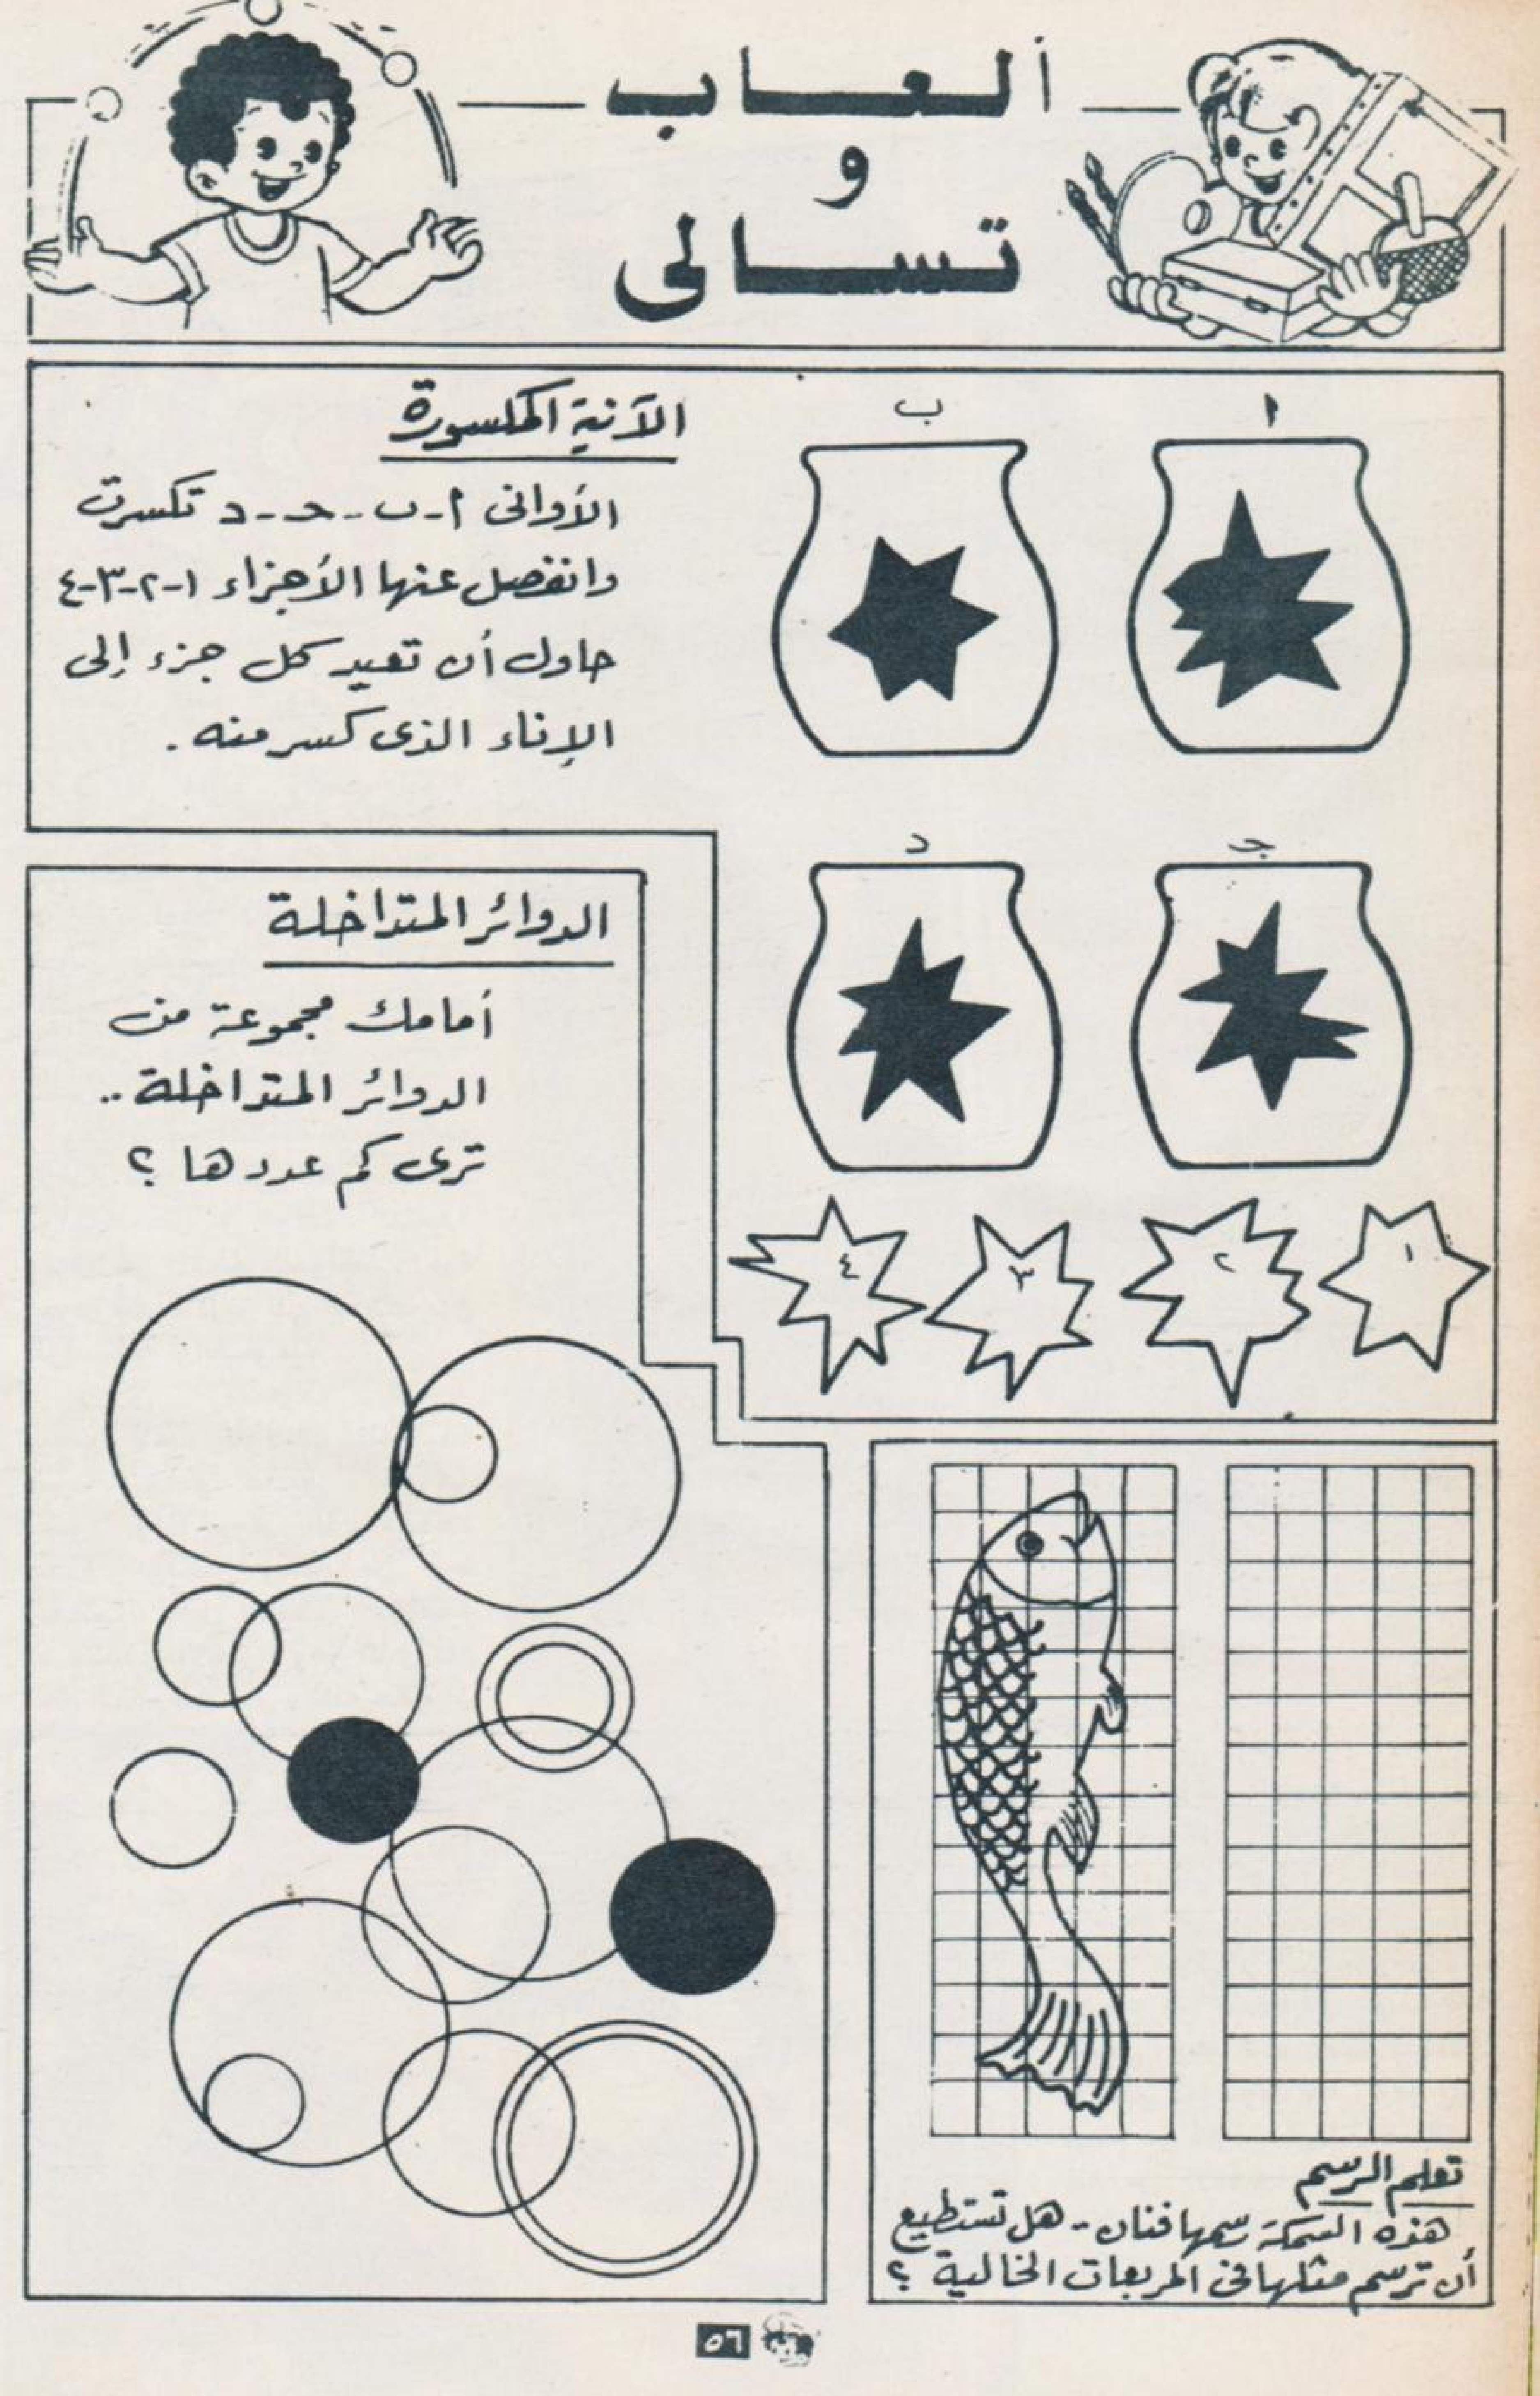 ألعاب
و
تسالى
الآنية المكسورة
الأوانى ا - ب - ح - د تكسرت
وانفصل عنها الأجزاء ١-٢-٣-٤
حاول أن تعيد كل جزء إلى
الإناء الذى كسر منه .
ا
ب
جـ
د
١
٢
٣
٤
الدوائر المتداخلة
أمامك مجموعة من
الدوائر المتداخلة ..
ترى كم عددها ؟
تعلم الرسم
هذه السمكة رسمها فنان - هل تستطيع
أن ترسم مثلها فى المربعات الخالية ؟
٥٦